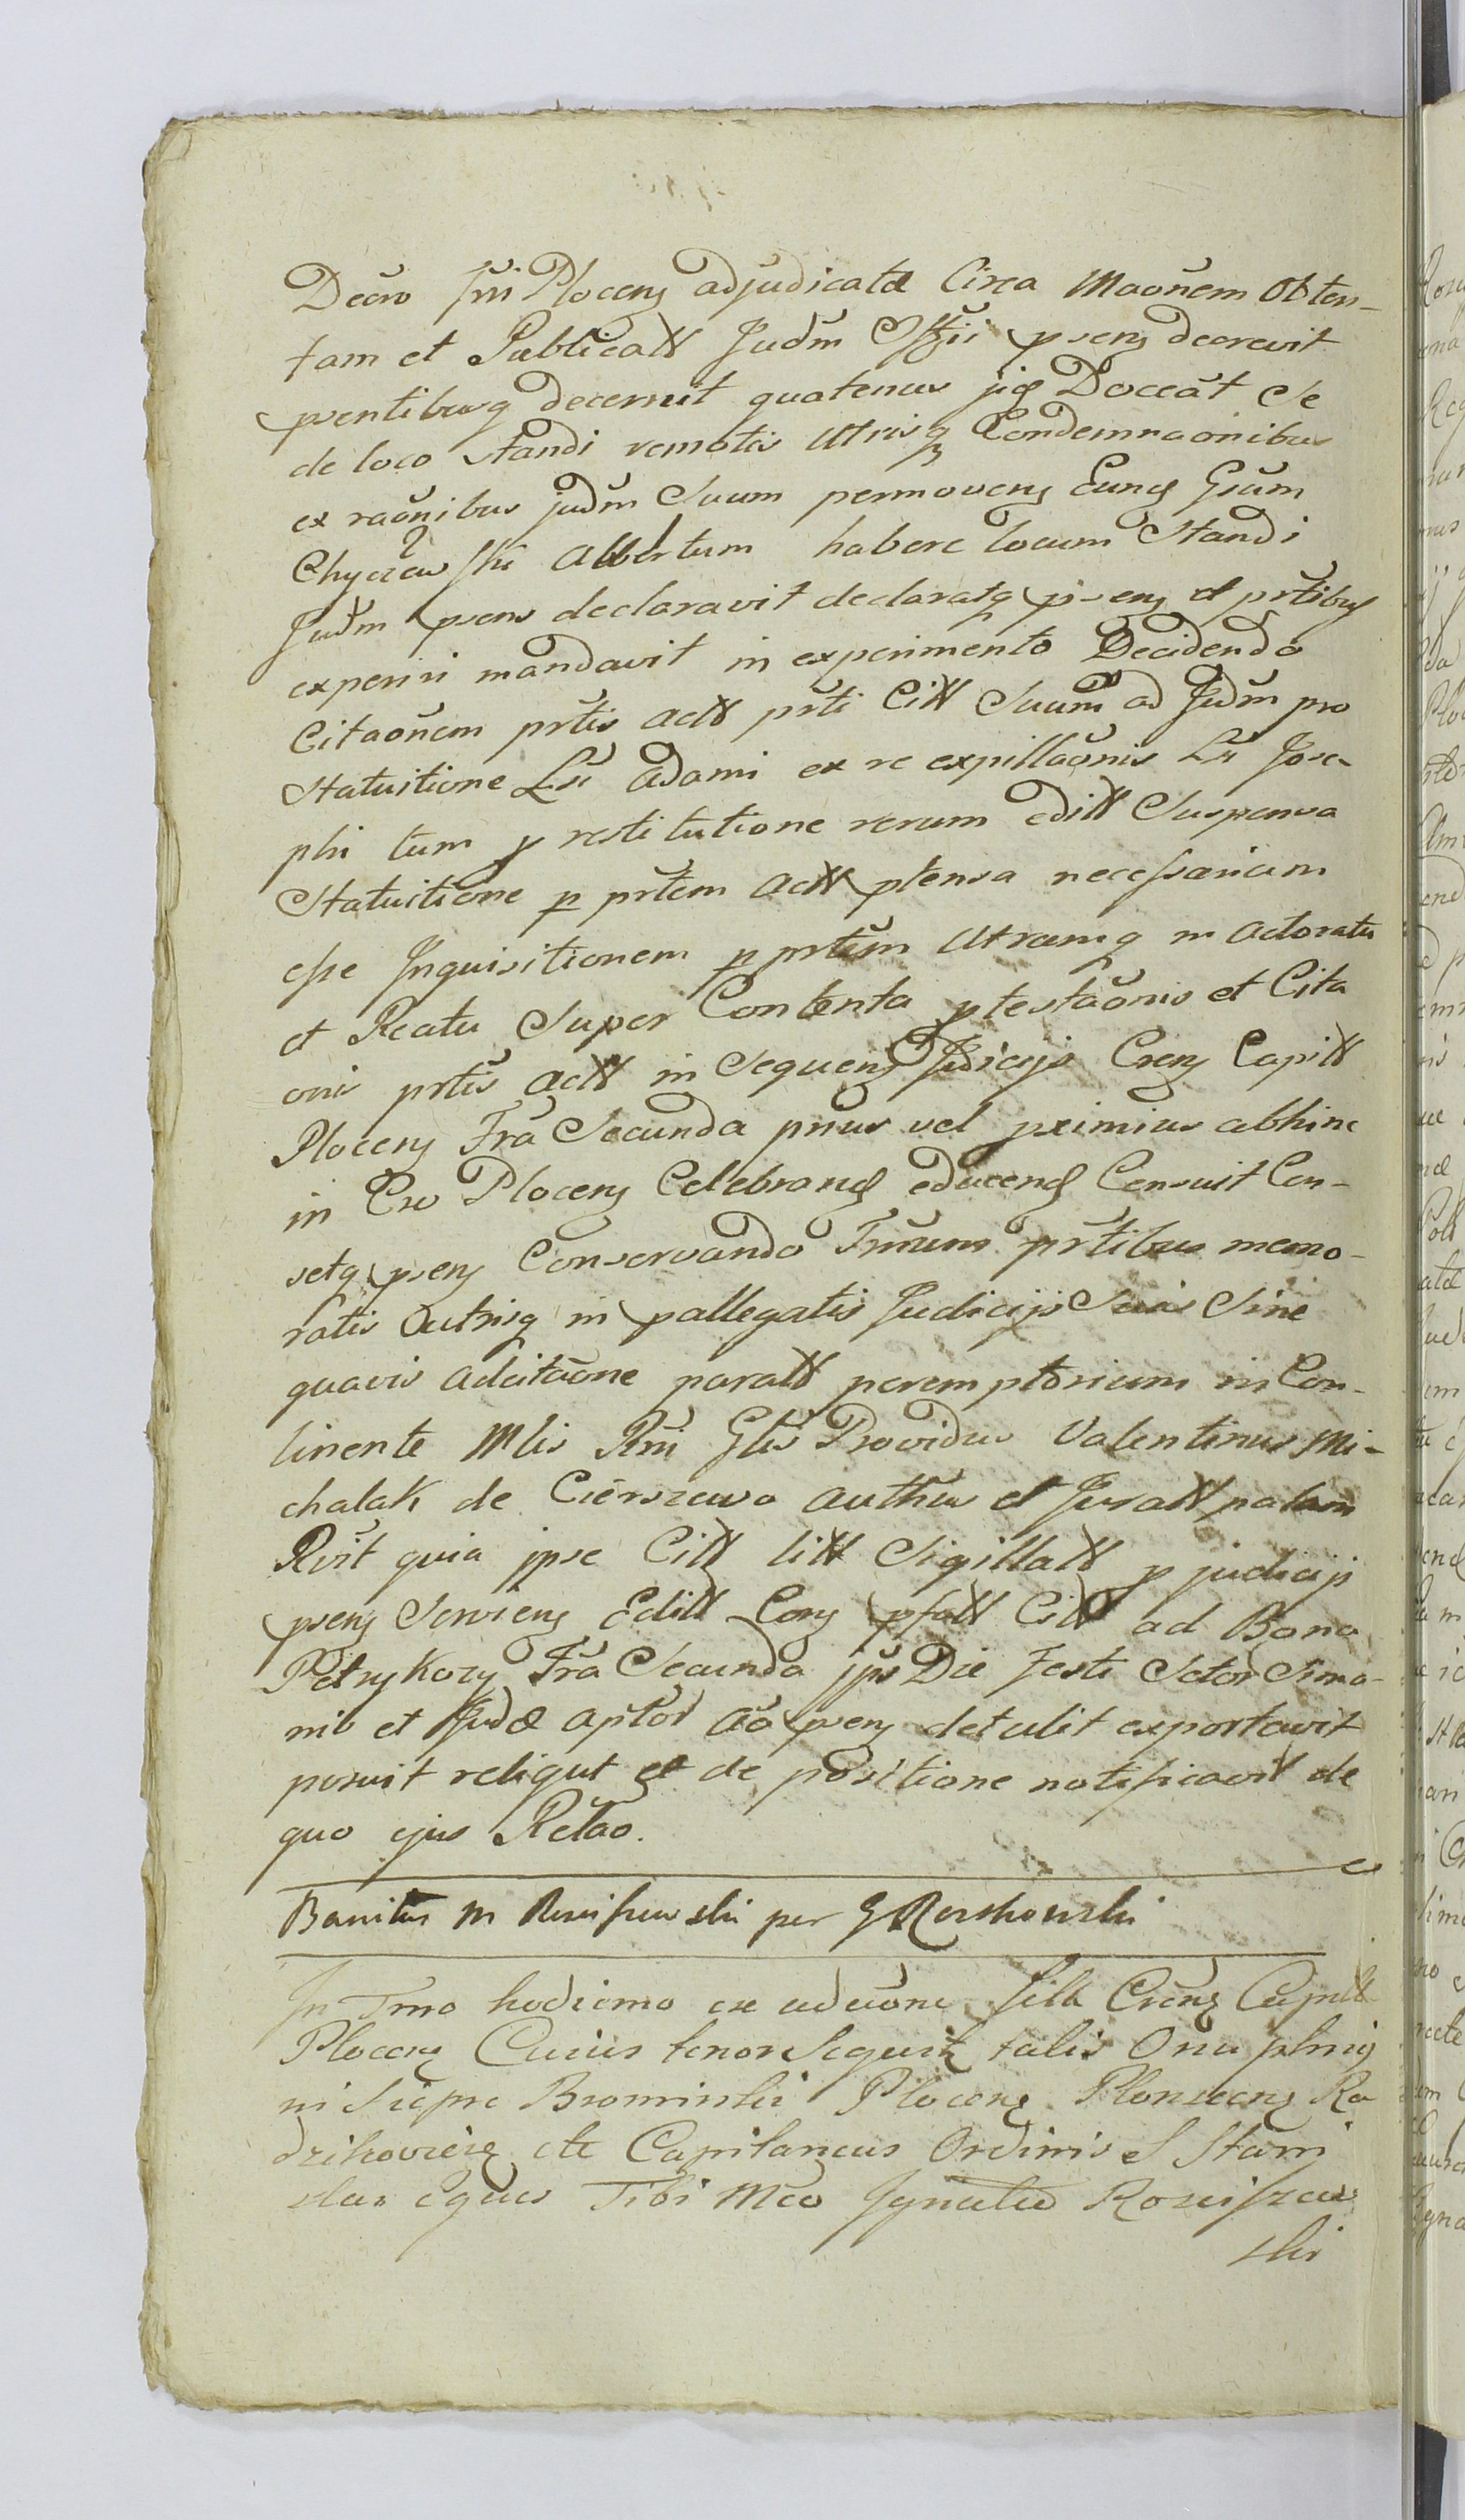 Decro Fri Plocens adjudicatæ Circa Maõnem obten-
tam et Publicatt Judm Offii psens decrevit
psentibusq decernit quatenus jis Doceãt Se
de loco standi remotis Utrisq Condemnaonibus
ex raõnibus judm Suum permovens Eund Gsũm
Chyczewski Albertum habere locum Standi
Judm psens declaravit declaratq psens et prtibus
experiri mandavit in experimento Decidendo
Citaõnem prtis actt prti Citt Suum ad Judm pro
Statuitione Lsi Adami ex re expillaõnis Lsi Jose-
phi tum p restitutione rerum editt Suspensa
Statuitione p prtem actt ptensa necessarium
esse Inquisitionem p prtem Utramq in actoratu
et Reatu Super Contenta ptestaõnis et Cita
onis prtis actt in Sequens Judicijs Crens Capitt
Plocens Fra Secunda prius vel pximius abhinc
in Cro Plocens Celebrand educend Censuit Cen-
setq psens Conservando Trnum prtibus memo-
ratis Outrisq in pallegatis Judicijs Suis Sine
quavis adcitaõne paratt peremptorium in Con-
tinente Mlis Rni Glis Providus Valentinus Mi-
chalak de Cierszewo authus et Juratt palam
Rvit quia ipse Citt litt Sigillatt p judicij
psens Serviens Editt Cons pfatt Citt ad Bona
Petrykozy Fra Secunda ips Die festi Sctor Simo-
nis et Judæ aptor Ao psens detulit exportavit
posuit reliqut et de positione notificavit de
quo ejus Relao.
Banitus M Rosciszewski per G Roszkowski
In Trno hodierno ex aduone Sctt Crens Capitt
Plocens Cuius tenor Sequit talis Onuphrius
in Siepre Brominski Plocens Plonscens Ra
dzikoviens etc Capitaneus Ordinis S Stani
slai Eques Tibi Mco Ignatio Rosciszew
ski